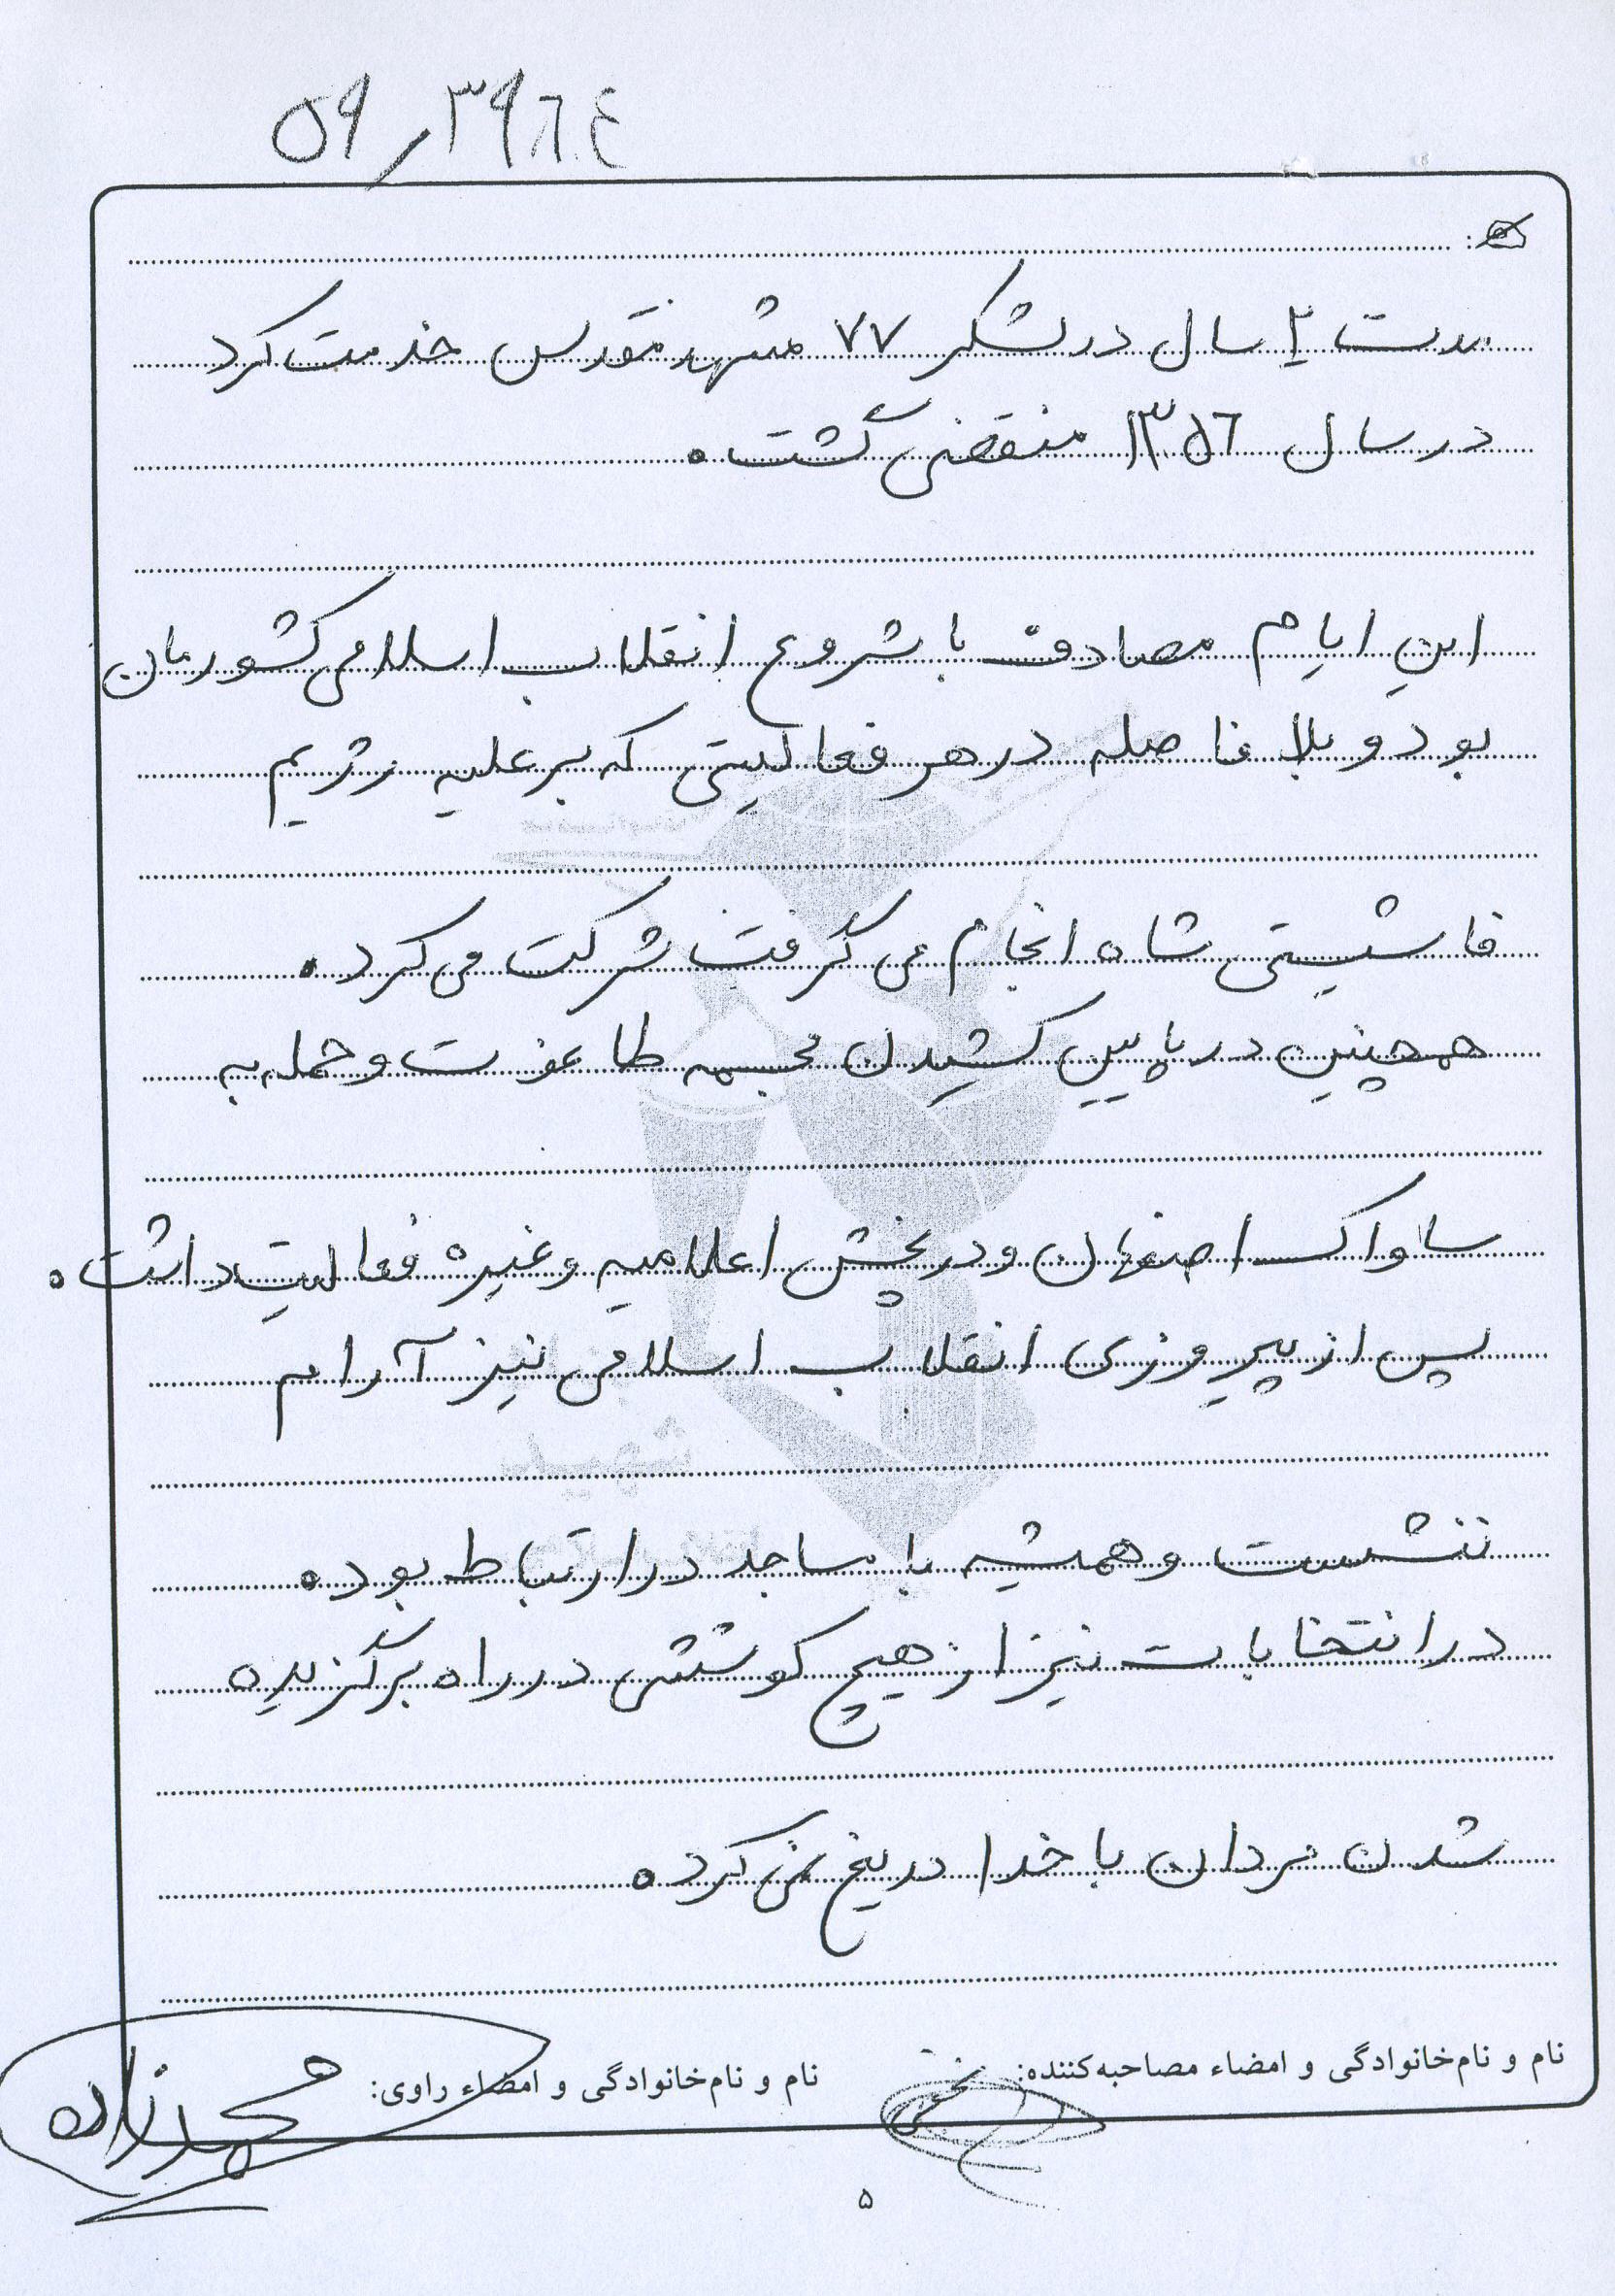 ۵۹/۳۹۶۴
مدت ۲ سال در لشکر ۷۷ مشهد مقدس خدمت کرد
در سال ۱۳۵۶ منقضی گشت.
این ایام مصادف با شروع انقلاب اسلامی کشورمان
بود و بلا فاصله در هر فعالیتی که بر علیه رژیم
فاشیستی شاه انجام می گرفت شرکت می کرد.
همچنین در پایین کشیدن مجسمه طاغوت و حمله به
ساواک اصفهان و در پخش اعلامیه و غیره فعالیت داشت.
پس از پیروزی انقلاب اسلامی نیز آرام
ننشست و همیشه با مساجد در ارتباط بود.
در انتخابات نیز از هیچ کوششی در راه برگزیده
شدن مردان با خدا دریغ نمی کرد.
نام و نام‌خانوادگی و امضاء مصاحبه‌کننده:
نام و نام‌خانوادگی و امضاء راوی:
شهید
۵